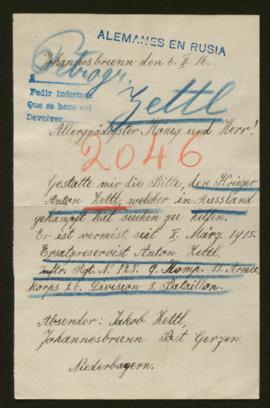 ALEMANES EN RUSIA
Johannesbrunn den 6. II. 16.
Petrogr.
A
Pedir informes
Que se hace así
Devolver
Zettl
Allergnädigster König und Herr!
2046
Gestatte mir die Bitte, den Krieger
Anton Zettl, welcher in Russland
gekämpft hat suchen zu helfen.
Er ist vermist seit X. März 1915.
Ersatzreservist Anton Zettl,
Inftr. Rgt. N.
9. Komp.
Armee
korps
Division 2. Bataillon.
Absender: Jakob Zettl,
Johannesbrunn Post Gerzen
Niederbayern.